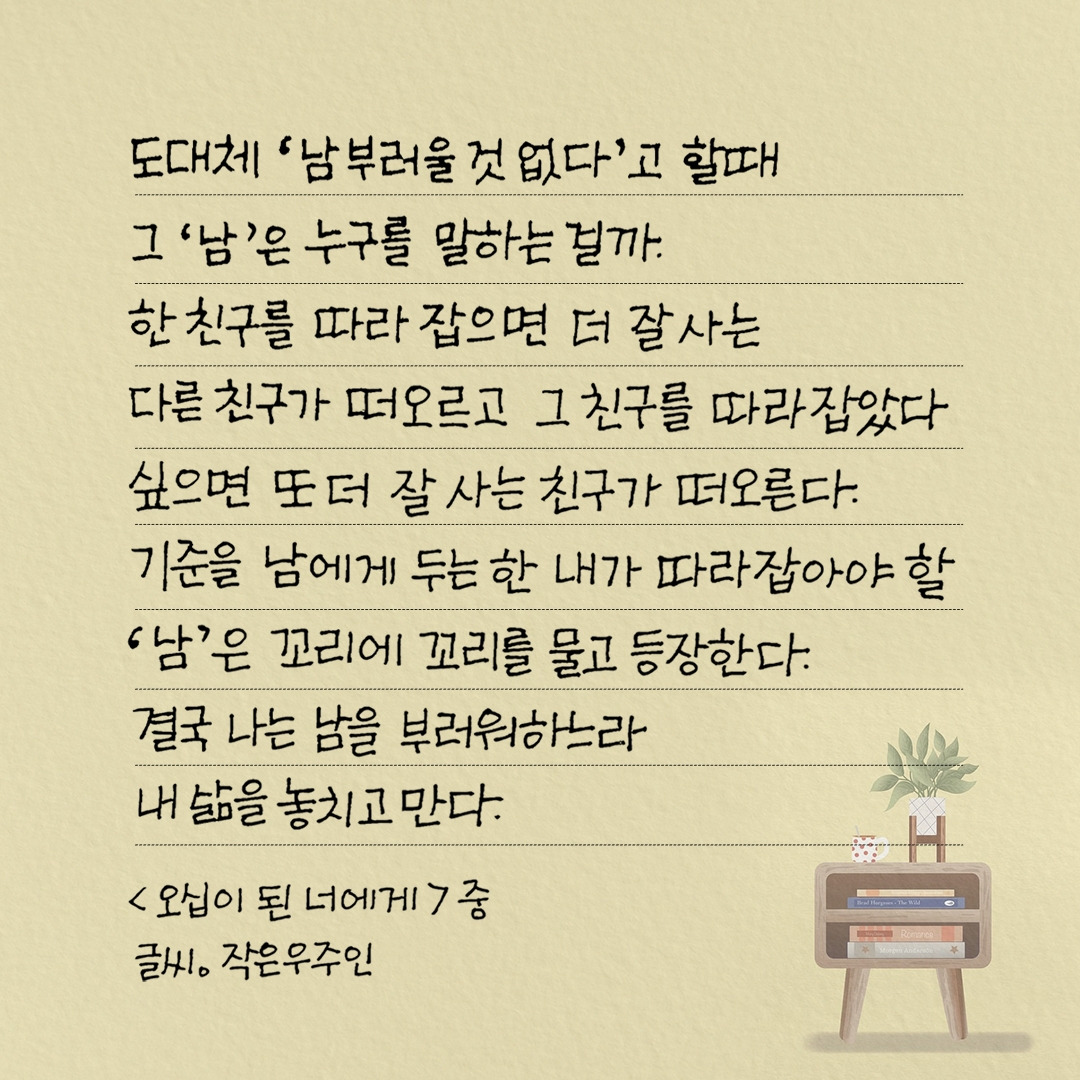 도대체 ‘남 부러울 것 없다’고 할때
그 ‘남’은 누구를 말하는 걸까.
한 친구를 따라 잡으면 더 잘 사는
다른 친구가 떠오르고 그 친구를 따라잡았다
싶으면 또 더 잘 사는 친구가 떠오른다.
기준을 남에게 두는 한 내가 따라잡아야 할
‘남’은 꼬리에 꼬리를 물고 등장한다.
결국 나는 남을 부러워하느라
내 삶을 놓치고 만다.
<오십이 된 너에게> 중
글씨。작은우주인
Romance